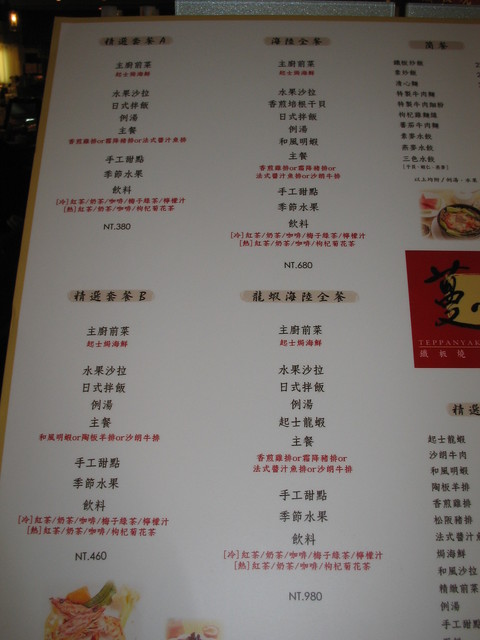 精選套餐A
主廚前菜
起士焗海鮮
水果沙拉
日式拌飯
例湯
主餐
香煎雞排or霜降豬排or法式醬汁魚排
手工甜點
季節水果
飲料
[冷]紅茶/奶茶/咖啡/梅子綠茶/檸檬汁
[熱]紅茶/奶茶/咖啡/枸杞菊花茶
NT.380
海陸全餐
主廚前菜
起士焗海鮮
水果沙拉
香煎培根干貝
日式拌飯
例湯
和風明蝦
主餐
香煎雞排or霜降豬排or
法式醬汁魚排or沙朗牛排
手工甜點
季節水果
飲料
[冷]紅茶/奶茶/咖啡/梅子綠茶/檸檬汁
[熱]紅茶/奶茶/咖啡/枸杞菊花茶
NT.680
精選套餐B
主廚前菜
起士焗海鮮
水果沙拉
日式拌飯
例湯
主餐
和風明蝦or陶板羊排or沙朗牛排
手工甜點
季節水果
飲料
[冷]紅茶/奶茶/咖啡/梅子綠茶/檸檬汁
[熱]紅茶/奶茶/咖啡/枸杞菊花茶
NT.460
龍蝦海陸全餐
主廚前菜
起士焗海鮮
水果沙拉
日式拌飯
例湯
起士龍蝦
主餐
香煎雞排or霜降豬排or
法式醬汁魚排or沙朗牛排
手工甜點
季節水果
飲料
[冷]紅茶/奶茶/咖啡/梅子綠茶/檸檬汁
[熱]紅茶/奶茶/咖啡/枸杞菊花茶
NT.980
簡餐
鐵板炒飯
素炒飯
清心麵
特製牛肉麵
特製牛肉細粉
枸杞雞麵線
番茄牛肉麵
韭菜水餃
高麗水餃
三色水餃
蔓
TEPPANYAK
鐵板燒
精選
起士龍蝦
沙朗牛肉
和風明蝦
陶板羊排
香煎雞排
松阪豬排
法式醬
焗海鮮
和風沙拉
精緻前菜
例湯
手工甜點